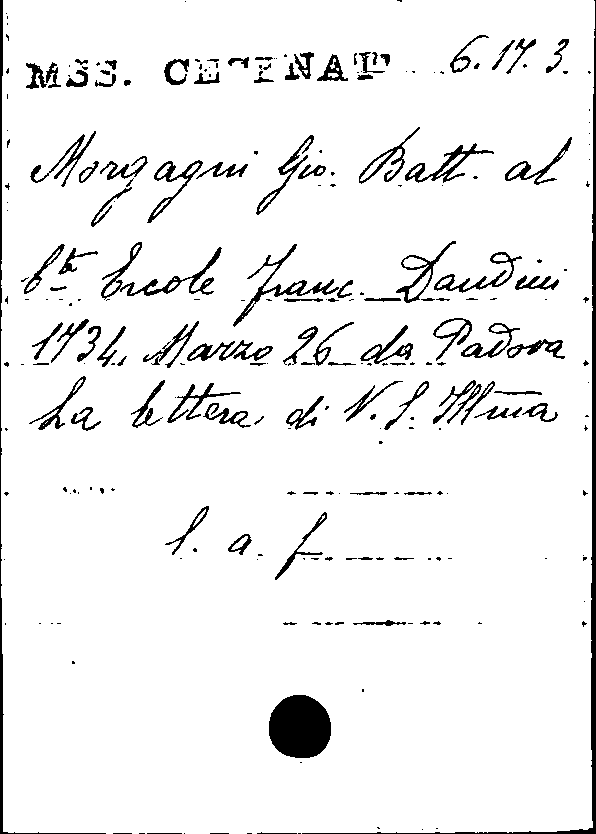 MSS. CESENATI 6.17.3.
Morgagni Gio. Batt. al
Cte Ercole Franc. Dandini
1734, Marzo 26 da Padova
La lettera di V. S. Illma
l. a. f.